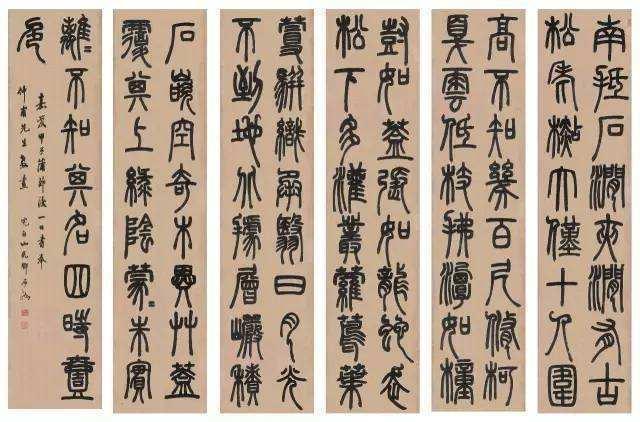 南抵石澗夾澗有古
松老杉大僅十人圍
高不知幾百尺脩柯
戛雲低枝拂潭如幢
豎如蓋張如龍蛇走
松下多灌叢蘿蔦葉
蔓駢織承翳日月光
不到地北據層巖積
石嵌空奇木異艸蓋
覆其上綠陰蒙〻朱實
離〻不知其名四時壹
色
嘉慶甲子蒲節後一日書奉
仲甫先生 完白山民鄧石如